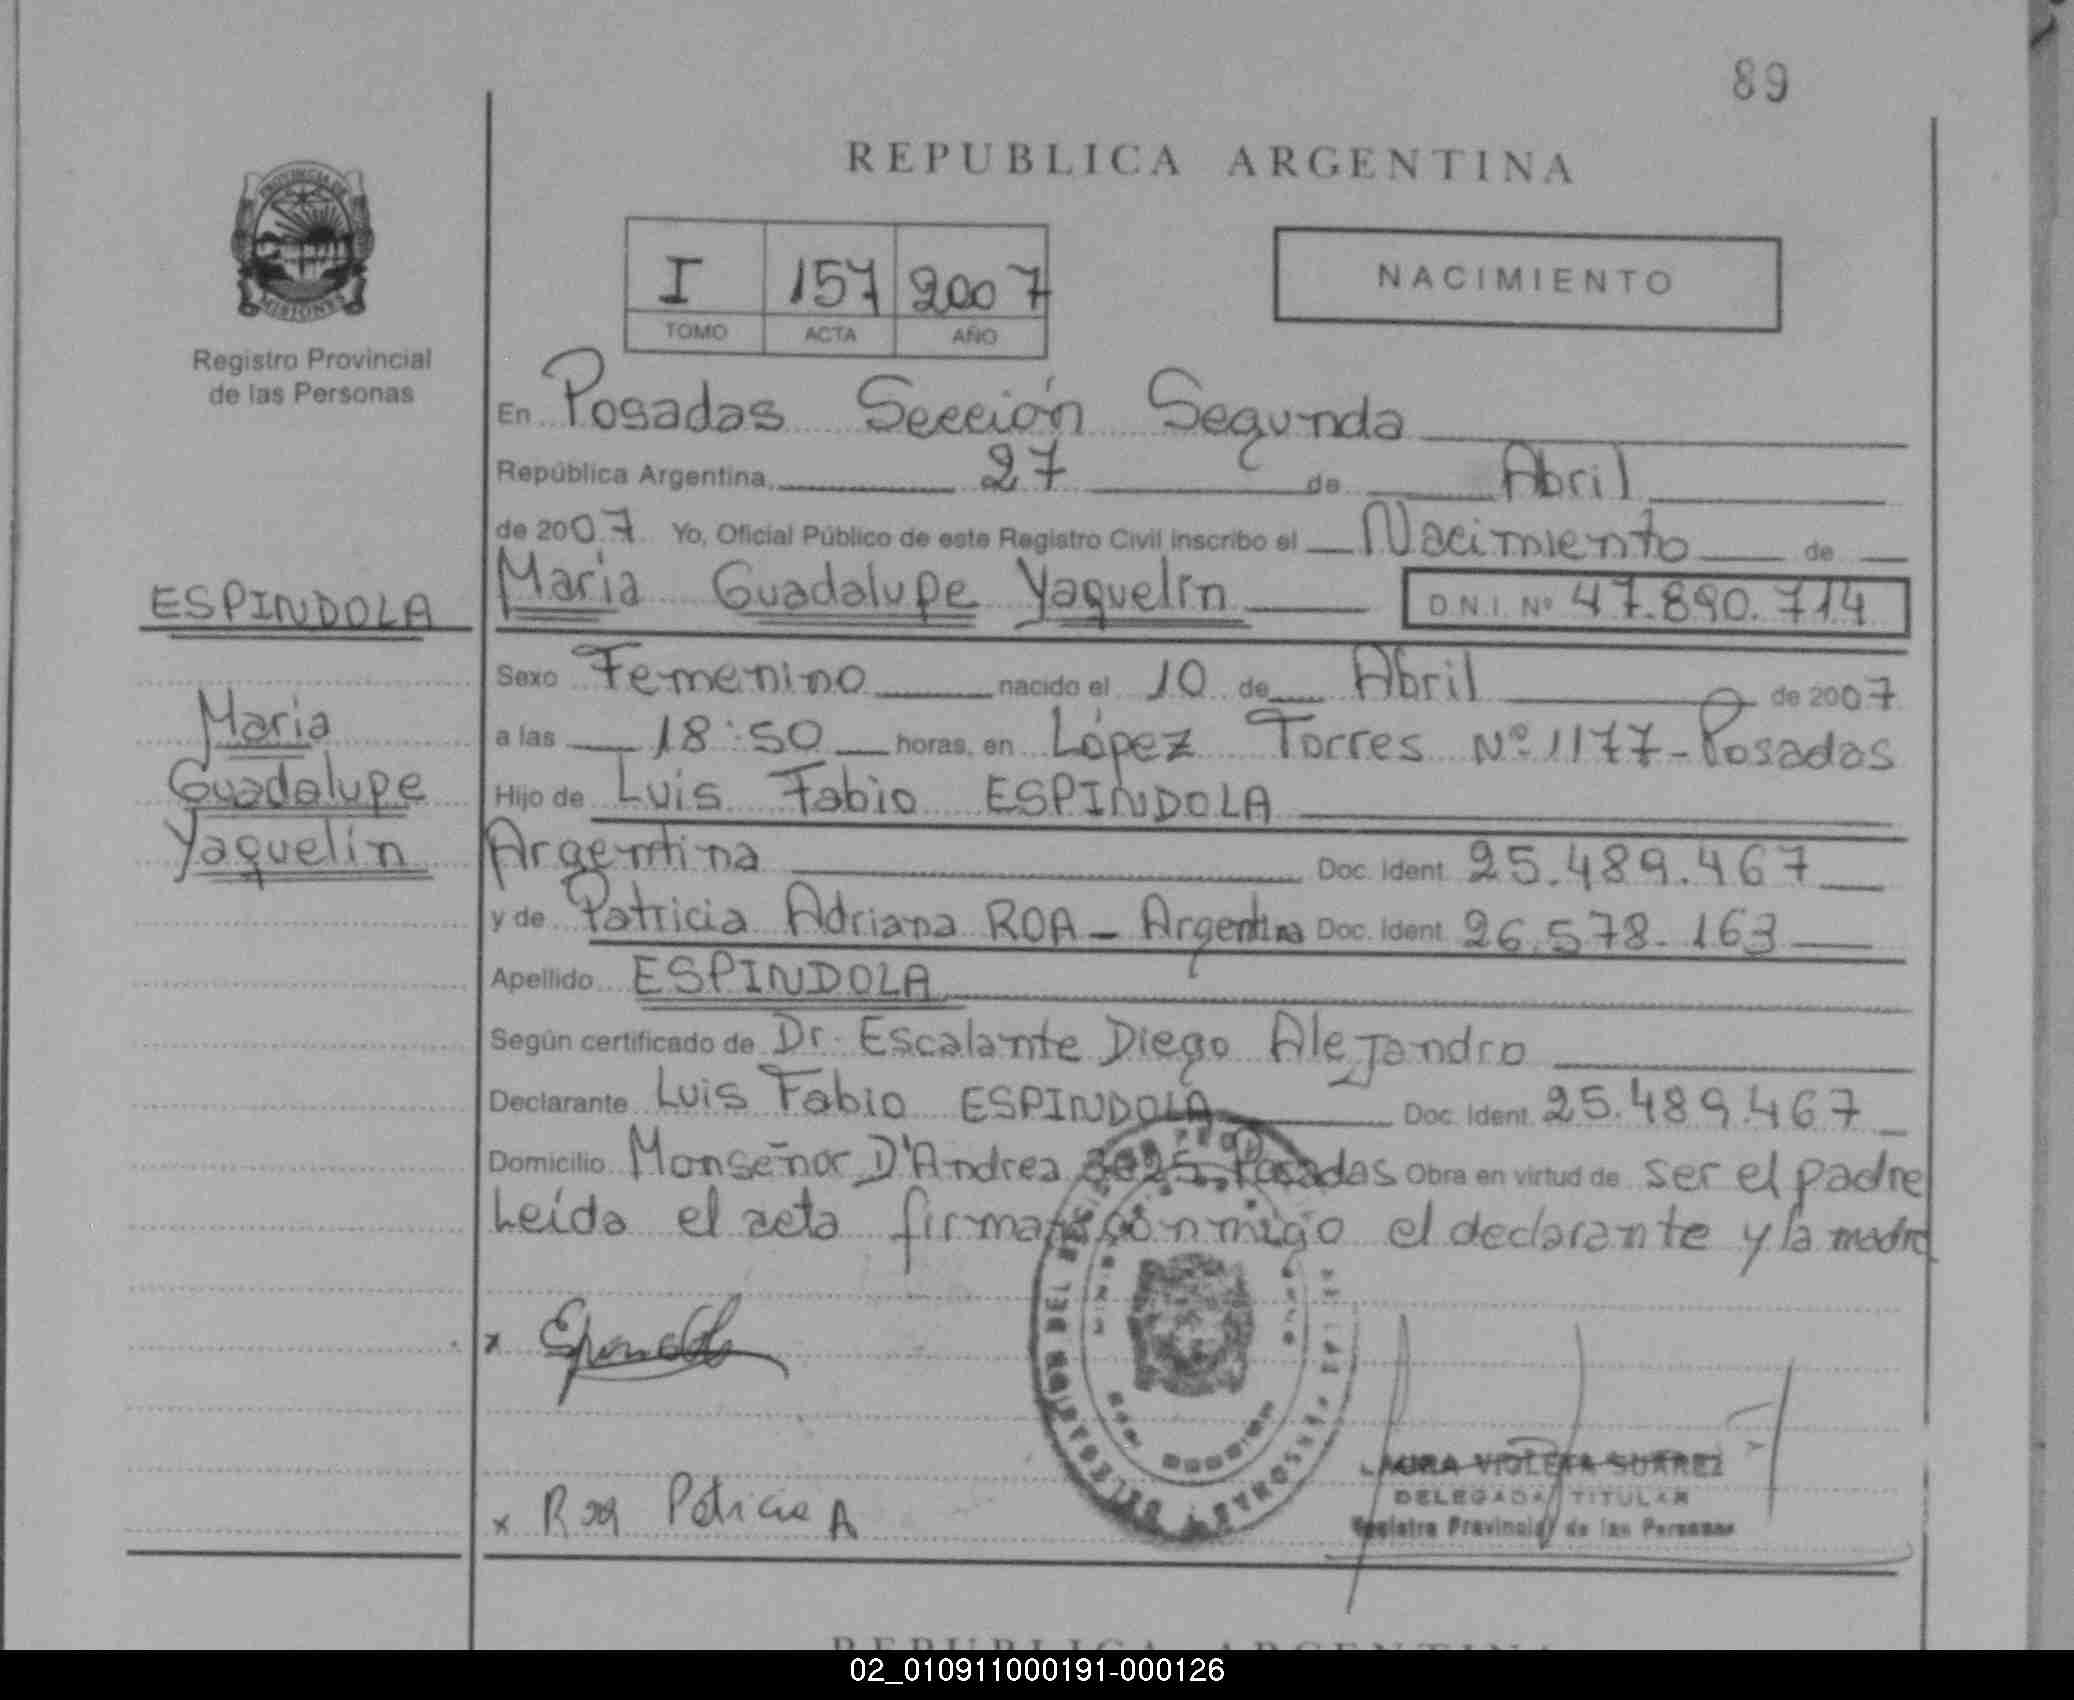 89
REPUBLICA ARGENTINA
PROVINCIA DE
MISIONES
Registro Provincial
de las Personas
I 157 2007
TOMO ACTA AÑO
NACIMIENTO
En Posadas Sección Segunda
República Argentina, 27 de Abril
de 2007 Yo, Oficial Público de este Registro Civil inscribo el Nacimiento de
ESPINDOLA
Maria Guadalupe Yaquelín
D.N.I. Nº 47.890.714
Sexo Femenino nacido el 10 de Abril de 2007
Maria
Guadalupe
Yaquelín
a las 18:50 horas, en López Torres Nº 1177-Posadas
Hijo de Luis Fabio ESPINDOLA
Argentina Doc. Ident. 25.489.467
y de Patricia Adriana ROA - Argentina Doc. Ident. 26.578.163
Apellido ESPINDOLA
Según certificado de Dr. Escalante Diego Alejandro
Declarante Luis Fabio ESPINDOLA Doc. Ident. 25.489.467
Domicilio Monseñor D'Andrea Posadas Obra en virtud de ser el padre
Leída el acta firman conmigo el declarante y la madre
x
x Roa Patricia A
LAURA VIOLETA SUAREZ
DELEGADA TITULAR
Registro Provincial de las Personas
REPUBLICA ARGENTINA
02_010911000191-000126